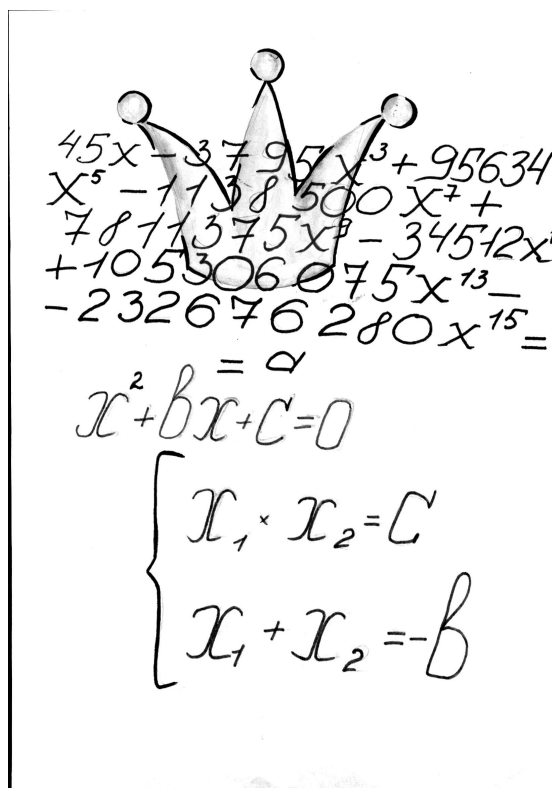 45x - 3795x³ + 95634
x⁵ - 1138500x⁷ +
7811375x⁹ - 34512x
+105306075x¹³ -
-232676280x¹⁵ =
= a
x² + bx + c = 0
x₁ · x₂ = c
x₁ + x₂ = -b